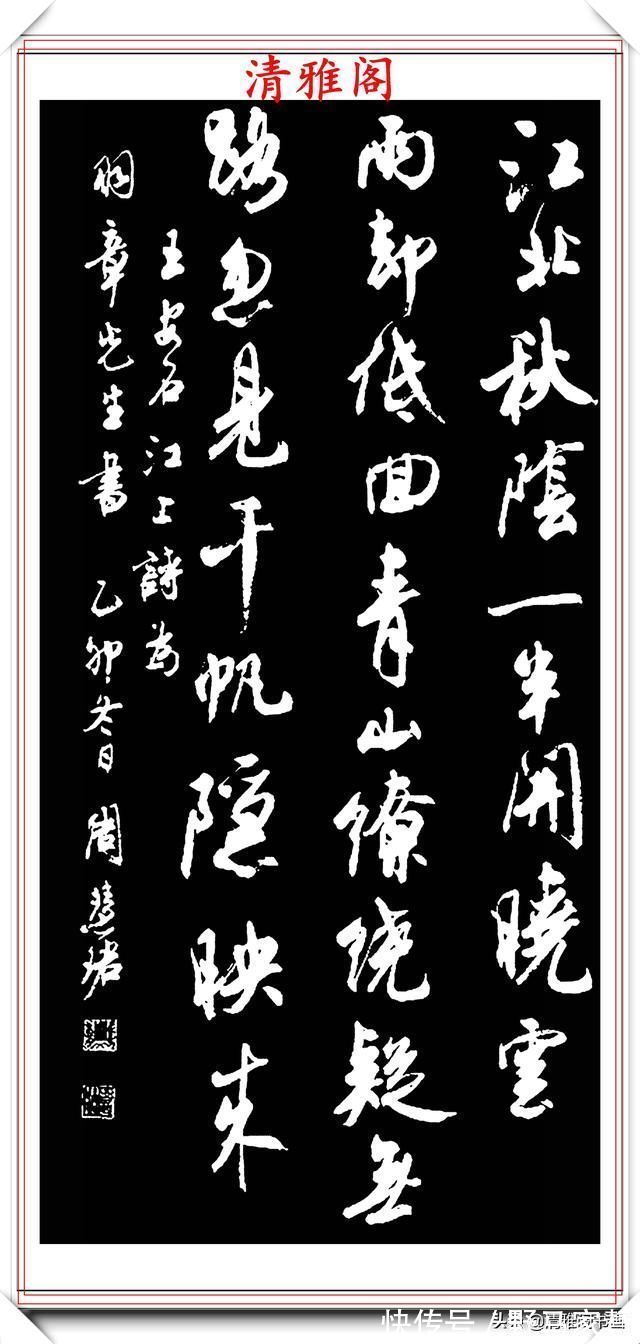 清雅阁
江北秋陰一半開曉雲
雨却低囬青山繚绕疑無
路忽見千帆隱映来
王安石江上詩为
羽章先生書 乙卯冬日 周慧珺
头条@清雅阁书画
快传号